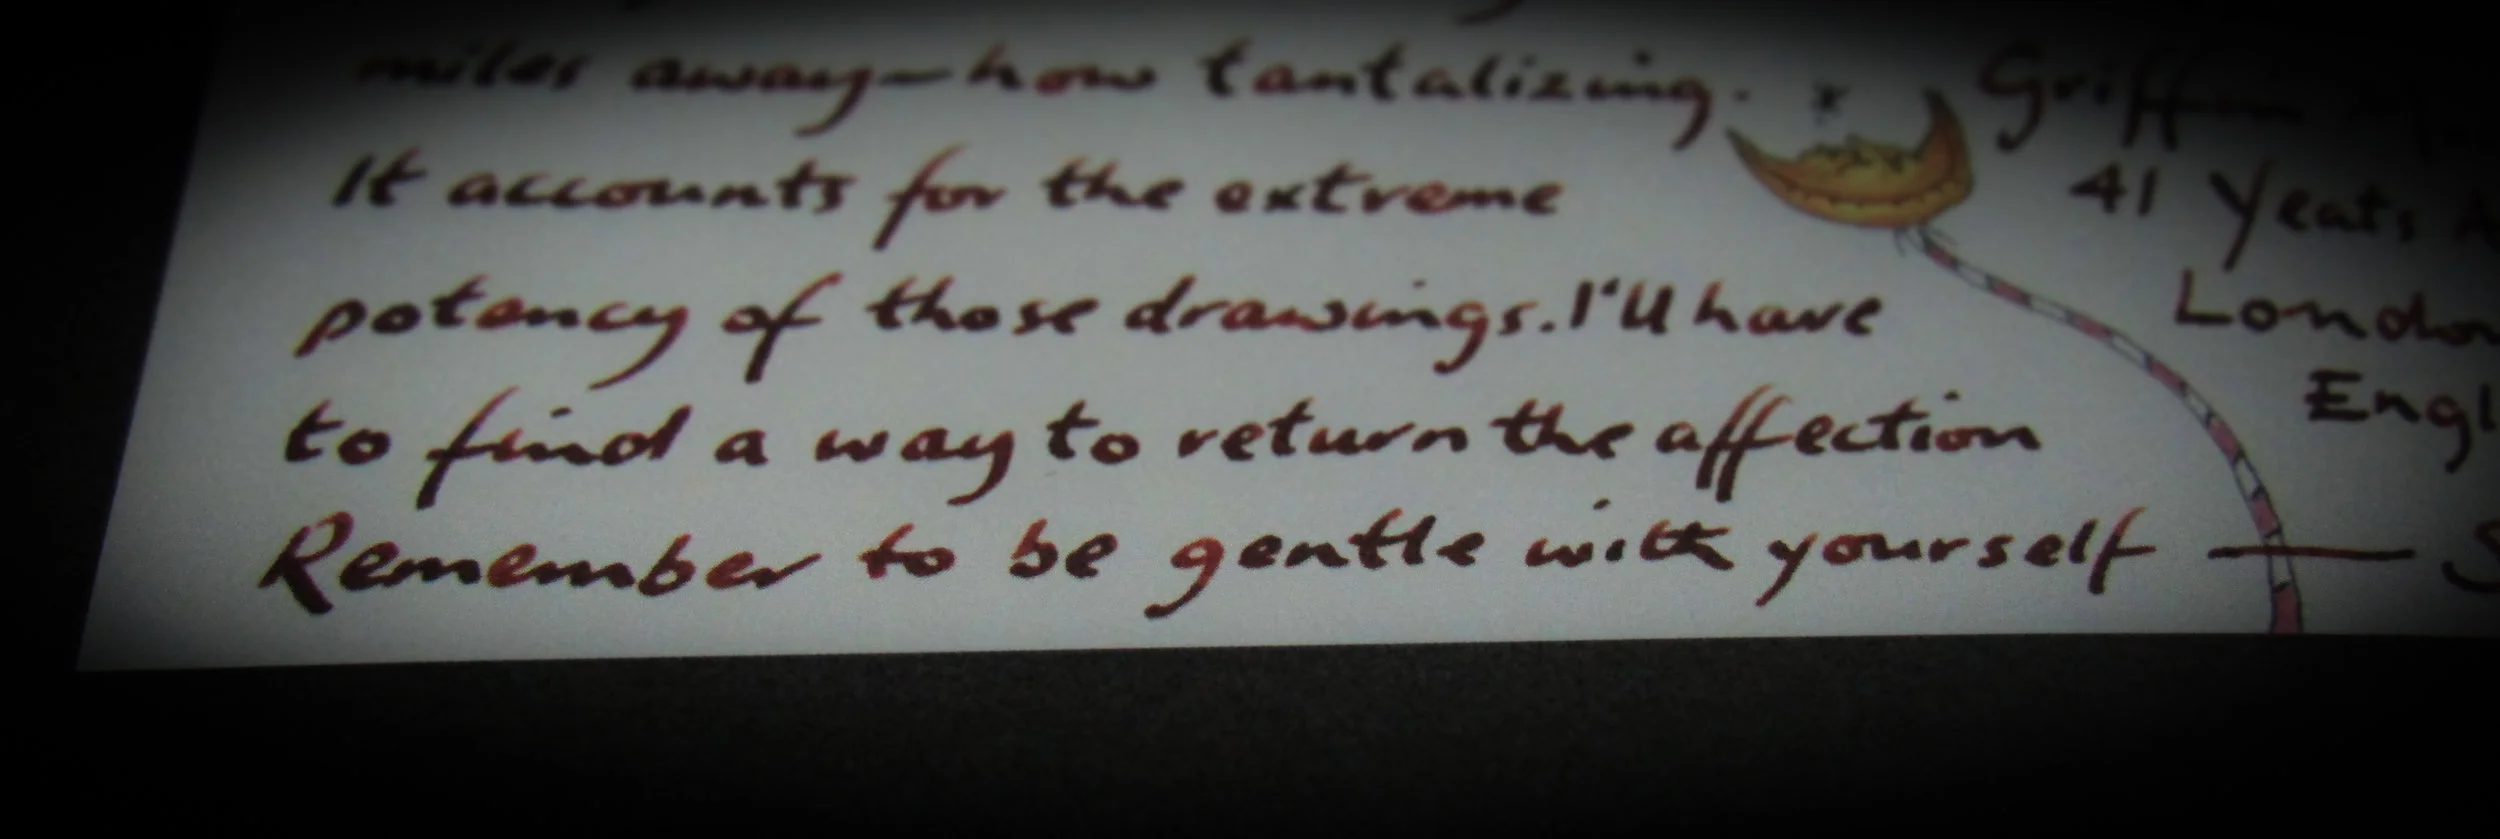 miles away—how tantalizing.
It accounts for the extreme
potency of those drawings. I'll have
to find a way to return the affection
Remember to be gentle with yourself —
Griffin
41 Yeats
London